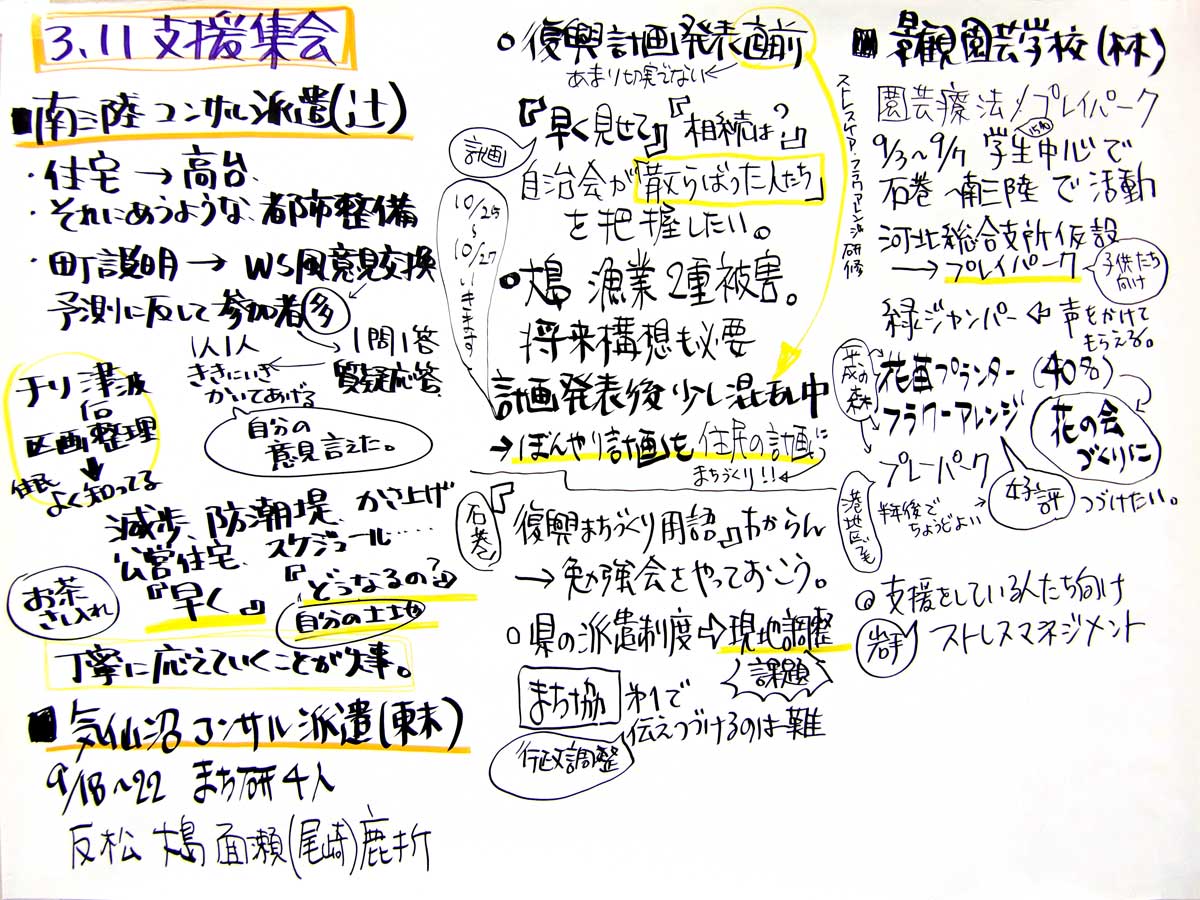 3.11 支援集会
■南三陸コンサル派遣(辻)
・住宅→高台、
・それにあうような、都市整備
・町説明→WS風意見交換
予測に反して参加者多
1問1答
質疑応答
1人1人
ききにいき
かいてあげる
自分の
意見言えた。
チリ津波
区画整理
住民
よく知ってる
減歩、防潮堤、かさ上げ
公営住宅、スケジュール…
『早く』
『どうなるの?』
自分の土地
お茶
さし入れ
丁寧に応えていくことが大事。
■気仙沼コンサル派遣(東末)
9/18〜22 まち研4人
反松 大島 面瀬(尾崎)鹿折
○復興計画発表直前
あまり切実でない←
『早く見せて』『相続は?』
計画
自治会が「散らばった人たち」
を把握したい。
10/25
〜
10/27
いきます
●大島 漁業2重被害。
将来構想も必要
計画発表後少し混乱中
→「ぼんやり計画」を住民の計画に
まちづくり!!←
石巻
『復興まちづくり用語』わからん
→勉強会をやっておこう。
○県の派遣制度⇨現地調整
課題
まち協 オ1で
伝えつづけるのは難
行政調整
■景観園芸学校(林)
ストレスケア、フラワーアレンジ研修
園芸療法/プレイパーク
15名
9/3〜9/7 学生中心で
石巻〜南三陸で活動
河北総合支所仮設
→プレイパーク
子供たち
向け
緑ジャンパー⇦声をかけて
もらえる。
花苗プランター(40名)
フラワーアレンジ
花の会
づくりに
プレーパーク
好評
つづけたい。
港地区でも
半年後で
ちょうどよい
◎支援をしている人たち向け
岩手
ストレスマネジメント